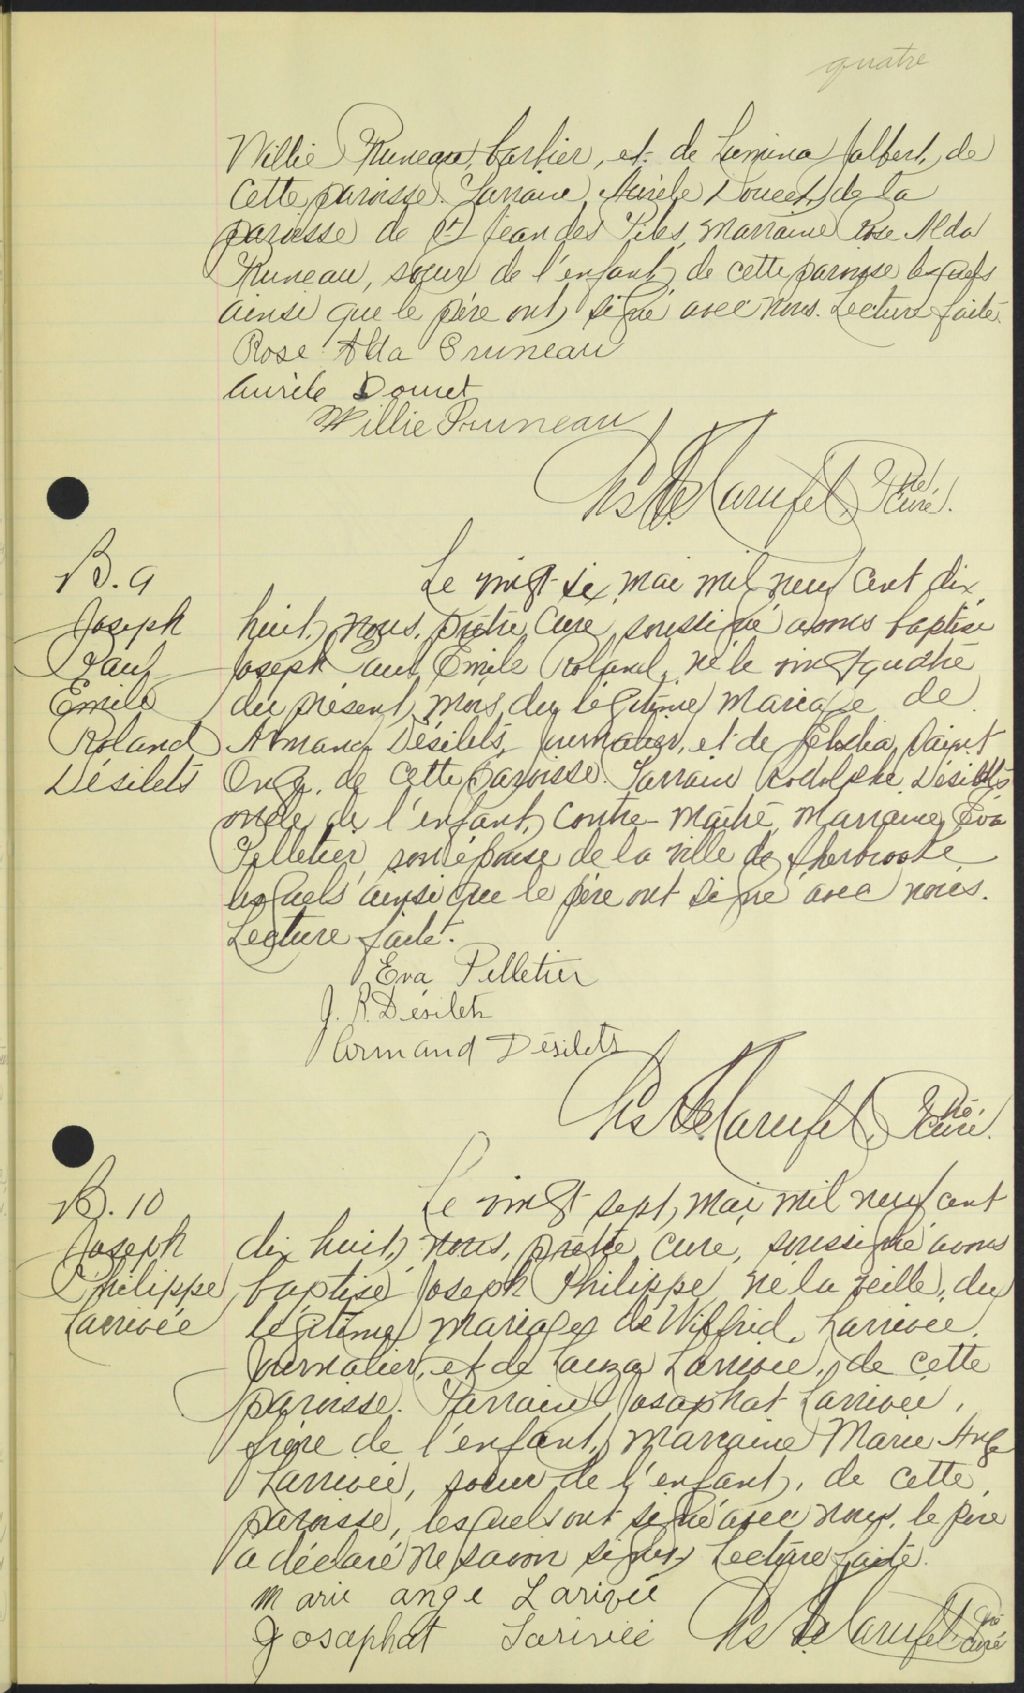 quatre
Willie Pruneau, barbier, et de Lumina Jalbert, de
cette paroisse. Parrain Aurèle Doucet, de la
paroisse de St Jean des Piles, marraine Rose Alda
Pruneau, sœur de l'enfant, de cette paroisse lesquels
ainsi que le père ont signé avec nous. Lecture faite.
Rose Alda Pruneau
Aurèle Doucet
Willie Pruneau
Ptre, Curé.
B. 9
Joseph
Paul
Emile
Roland
Désilets
Le vingt-six mai mil neuf cent dix
huit, nous, prêtre curé soussigné avons baptisé
Joseph Paul Emile Roland, né le vingt quatre
du présent mois, du légitime mariage de
Armand Désilets, journalier, et de
Onge, de cette paroisse. Parrain Rodolphe Désilets
oncle de l'enfant, contre-maître, marraine Eva
Pelletier, son épouse de la ville de Sherbrooke
lesquels ainsi que le père ont signé avec nous.
Lecture faite.
Eva Pelletier
J. R. Désilets
Armand Désilets
Ptre, Curé.
B. 10
Joseph
Philippe
Larrivée
Le vingt sept, mai mil neuf cent
dix huit, nous, prêtre curé, soussigné avons
baptisé Joseph Philippe, né la veille, du
légitime mariage de Wilfrid Larrivée,
journalier, et de Larrivée, de cette
paroisse. Parrain Josaphat Larrivée,
frère de l'enfant, marraine Marie Ange
Larrivée, sœur de l'enfant, de cette
paroisse, lesquels ont signé avec nous, le père
a déclaré ne savoir signer, Lecture faite.
Marie ange Larivée
Josaphat Larivée
Ptre Curé